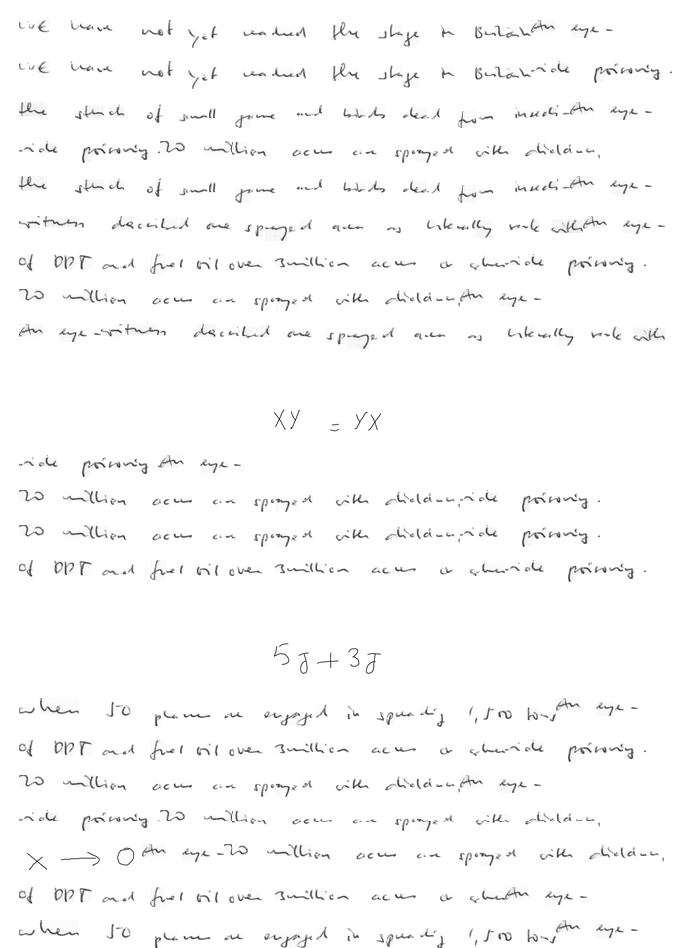 we have not yet reached the stage in Britain An eye-
we have not yet reached the stage in Britain -cide poisoning.
the stench of small game and birds dead from insecti- An eye-
-cide poisoning. 20 million acres are sprayed with dieldrin,
the stench of small game and birds dead from insecti- An eye-
witness described one sprayed area as literally rank with An eye-
of DDT and fuel oil over 3 million acres a -cide poisoning.
20 million acres are sprayed with dieldrin, An eye-
An eye-witness described one sprayed area as literally rank with
XY = YX
-cide poisoning An eye-
20 million acres are sprayed with dieldrin, -cide poisoning.
20 million acres are sprayed with dieldrin, -cide poisoning.
of DDT and fuel oil over 3 million acres a -cide poisoning.
5J + 3J
when 50 planes are engaged in spreading 1,500 tons An eye-
of DDT and fuel oil over 3 million acres a -cide poisoning.
20 million acres are sprayed with dieldrin, An eye-
-cide poisoning. 20 million acres are sprayed with dieldrin,
X → 0 An eye- 20 million acres are sprayed with dieldrin,
of DDT and fuel oil over 3 million acres a An eye-
when 50 planes are engaged in spreading 1,500 tons An eye-